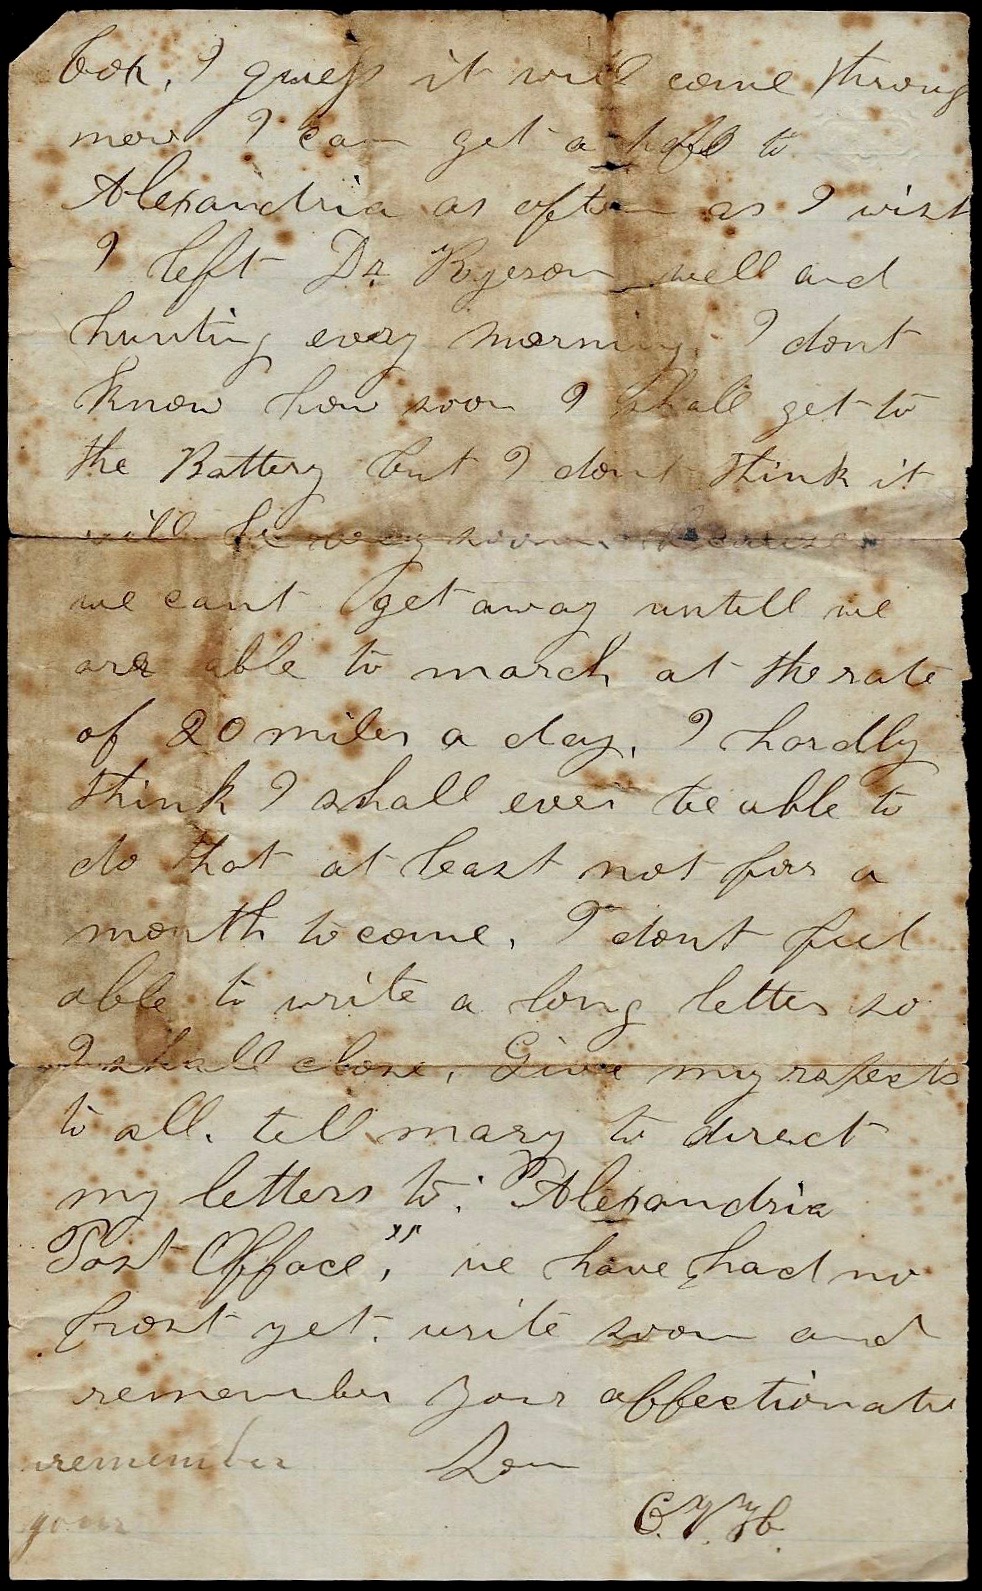 box, I guess it will come throug
now I can get a pass to
Alexandria as often as I wish
I left Dr. Ryerson well and
hunting every morning. I dont
know how soon I shall get to
the Battery but I dont think it
will be very soon. Because
we cant get away untill we
are able to march at the rate
of 20 miles a day. I hardly
think I shall ever be able to
do that at least not for a
month to come. I dont feel
able to write a long letter so
I shall close. Give my respects
to all. tell mary to direct
my letters to: "Alexandria
Post Offace," we have had no
frost yet. write soon and
remember your affectionate
remember Son
your
C. V. H.